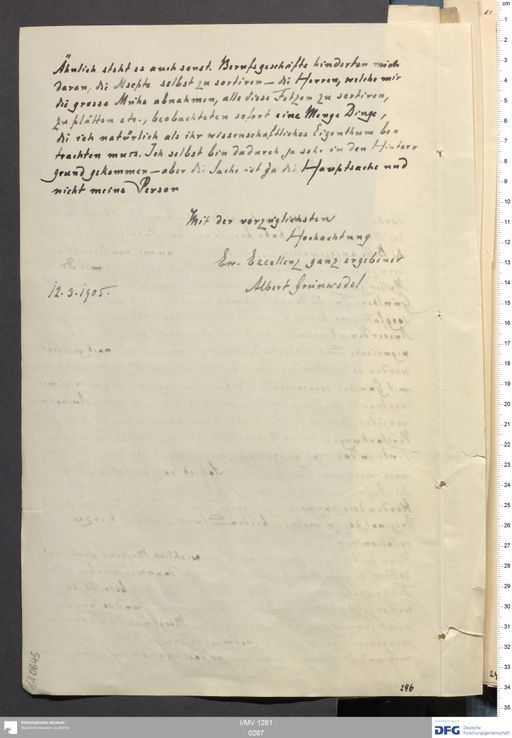 Ähnlich steht es auch sonst. Berufsgeschäfte hinderten mich
daran, die Mscpte selbst zu sortiren – die Herren, welche mir
die grosse Mühe abnahmen, alle diese Fetzen zu sortiren,
zu plätten etc., beobachteten sofort eine Menge Dinge,
die ich natürlich als ihr wissenschaftliches Eigenthum be-
trachten muss. Ich selbst bin dadurch ja sehr in den Hinter-
grund gekommen – aber die Sache ist ja die Hauptsache und
nicht meine Person
Mit der vorzüglichsten
Hochachtung
Ew. Excellenz ganz ergebener
Albert Grünwedel
12.3.1905.
1A 0645
246
Ethnologisches Museum
Staatliche Museen zu Berlin
I/MV 1261
0267
DFG Deutsche
Forschungsgemeinschaft